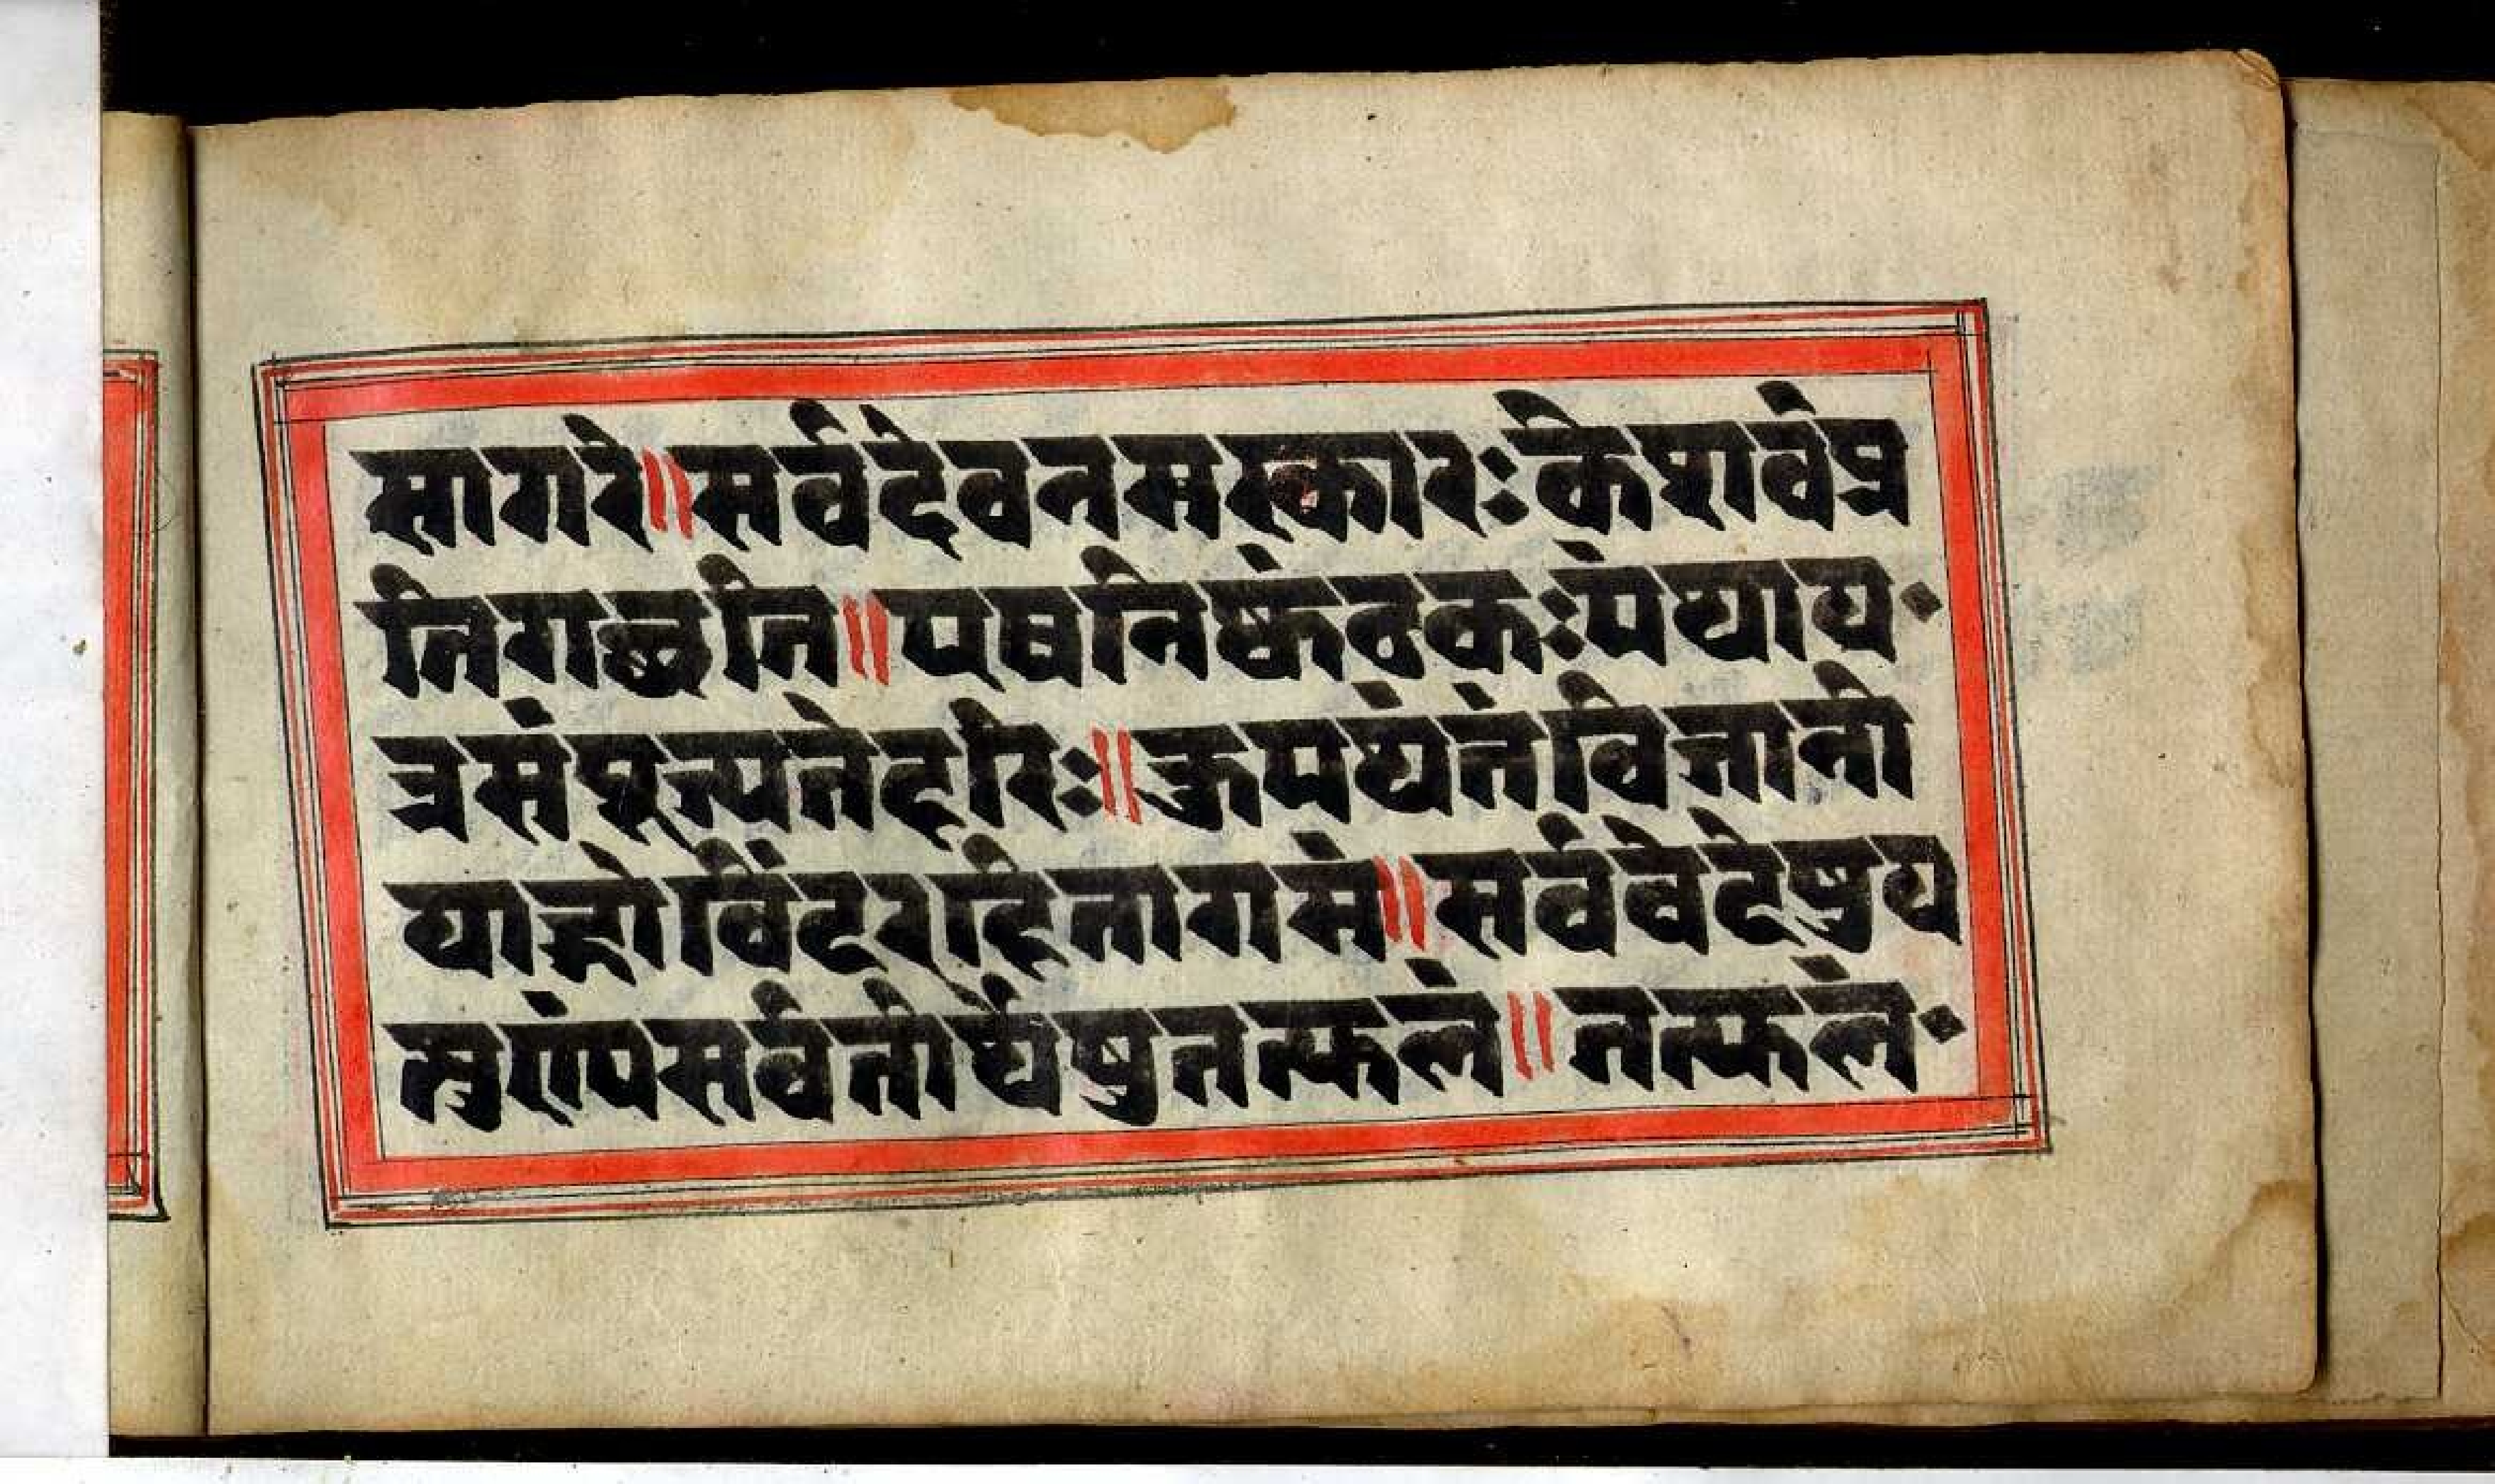 सागरे॥सर्वदेवनमस्कारःकेशवंप्र
तिगछति॥एषनिष्कंटकःपंथाय
त्रसंपूज्यतेहरिः॥कुपथंतंविजानी
याद्गोविंदरहितागमं॥सर्ववेदेषुय
त्पुण्यंसर्वतीर्थेषुतत्फलं॥तत्फलं